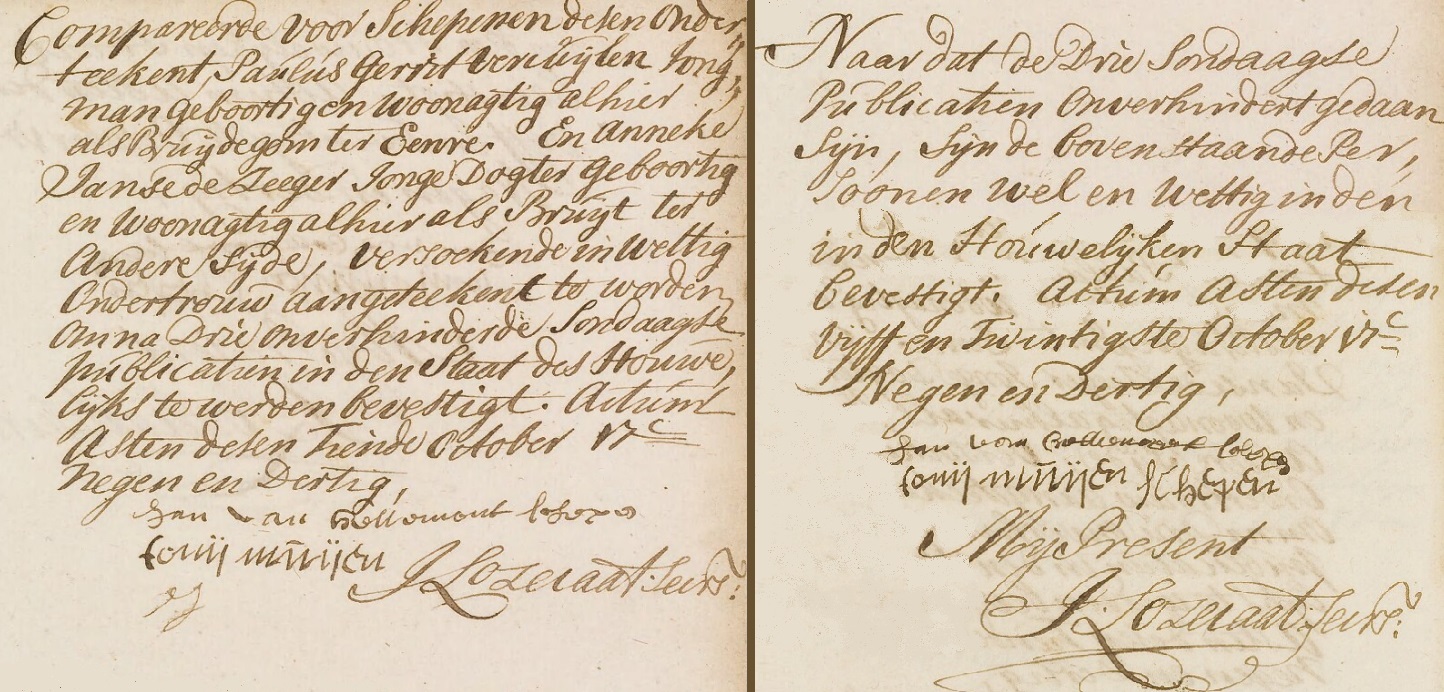 Compareerde voor Schepenen desen onder,
teekent, Paulus Gerrit Veruijten Jong,
man geboortig en woonagtig alhier
als Bruijdegom ter Eenre. En Anneke
Janse de Zeeger Jonge Dogter geboortig
en woonagtig alhier als Bruijt ter
Andere Sijde, versoekende in Wettig
Ondertrouw aangeteekent te worden,
omna Drie onverhinderde Sondaagse
publicatien in den Staat des Houwe,
lijks te werden bevestigt. Actum
Asten desen Tiende October 17c
Negen en Dertig,
Jan van
tonij
J. Losecaat. Secrs.
Naar dat de Drie Sondaagse
Publicatien Onverhindert gedaan
Sijn, Sijn de bovenstaande Per,
soonen wel en wettig in den
in den Houwelijken Staat
bevestigt. Actum Asten desen
vijff en Twintigste October 17c
Negen en Dertig,
Jan van
tonij schepen
Mij Present
J. Losecaat. Secrs.